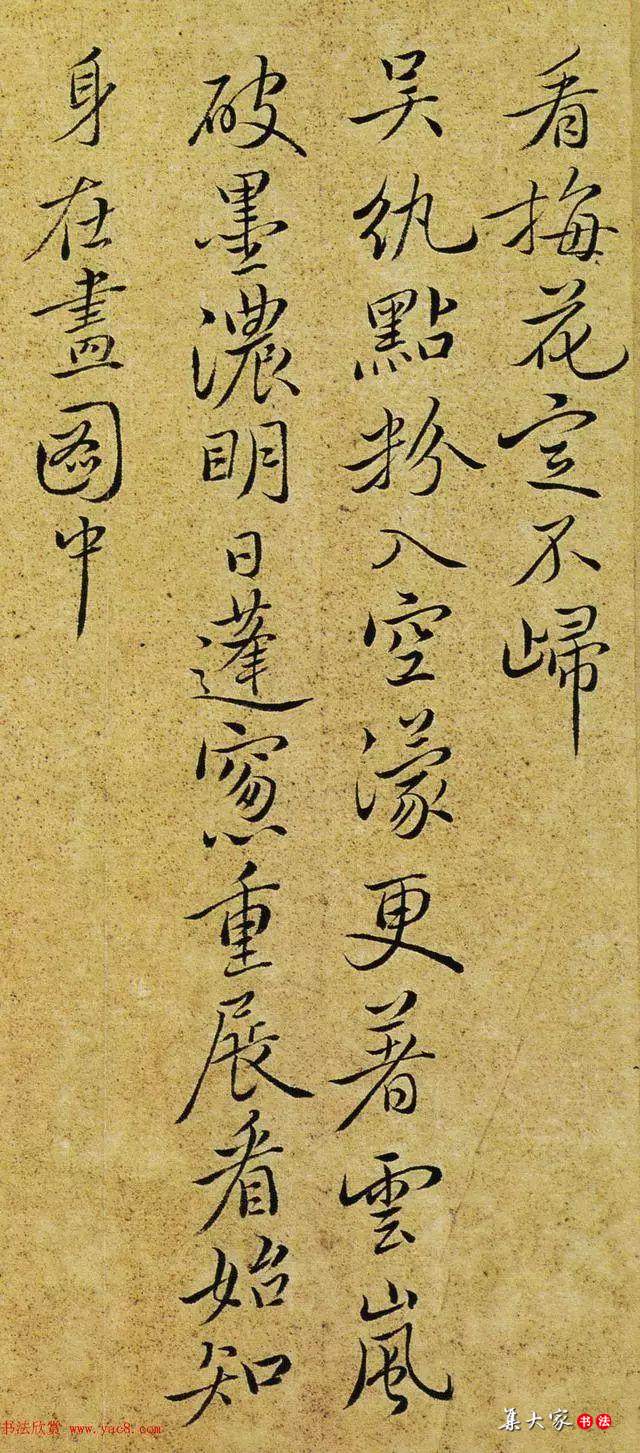 看梅花定不歸
吴紈點粉入空濛更著雲嵐
破墨濃明日蓬窻重展看始知
身在畫圖中
书法欣赏 www.yac8.com
集大家书法